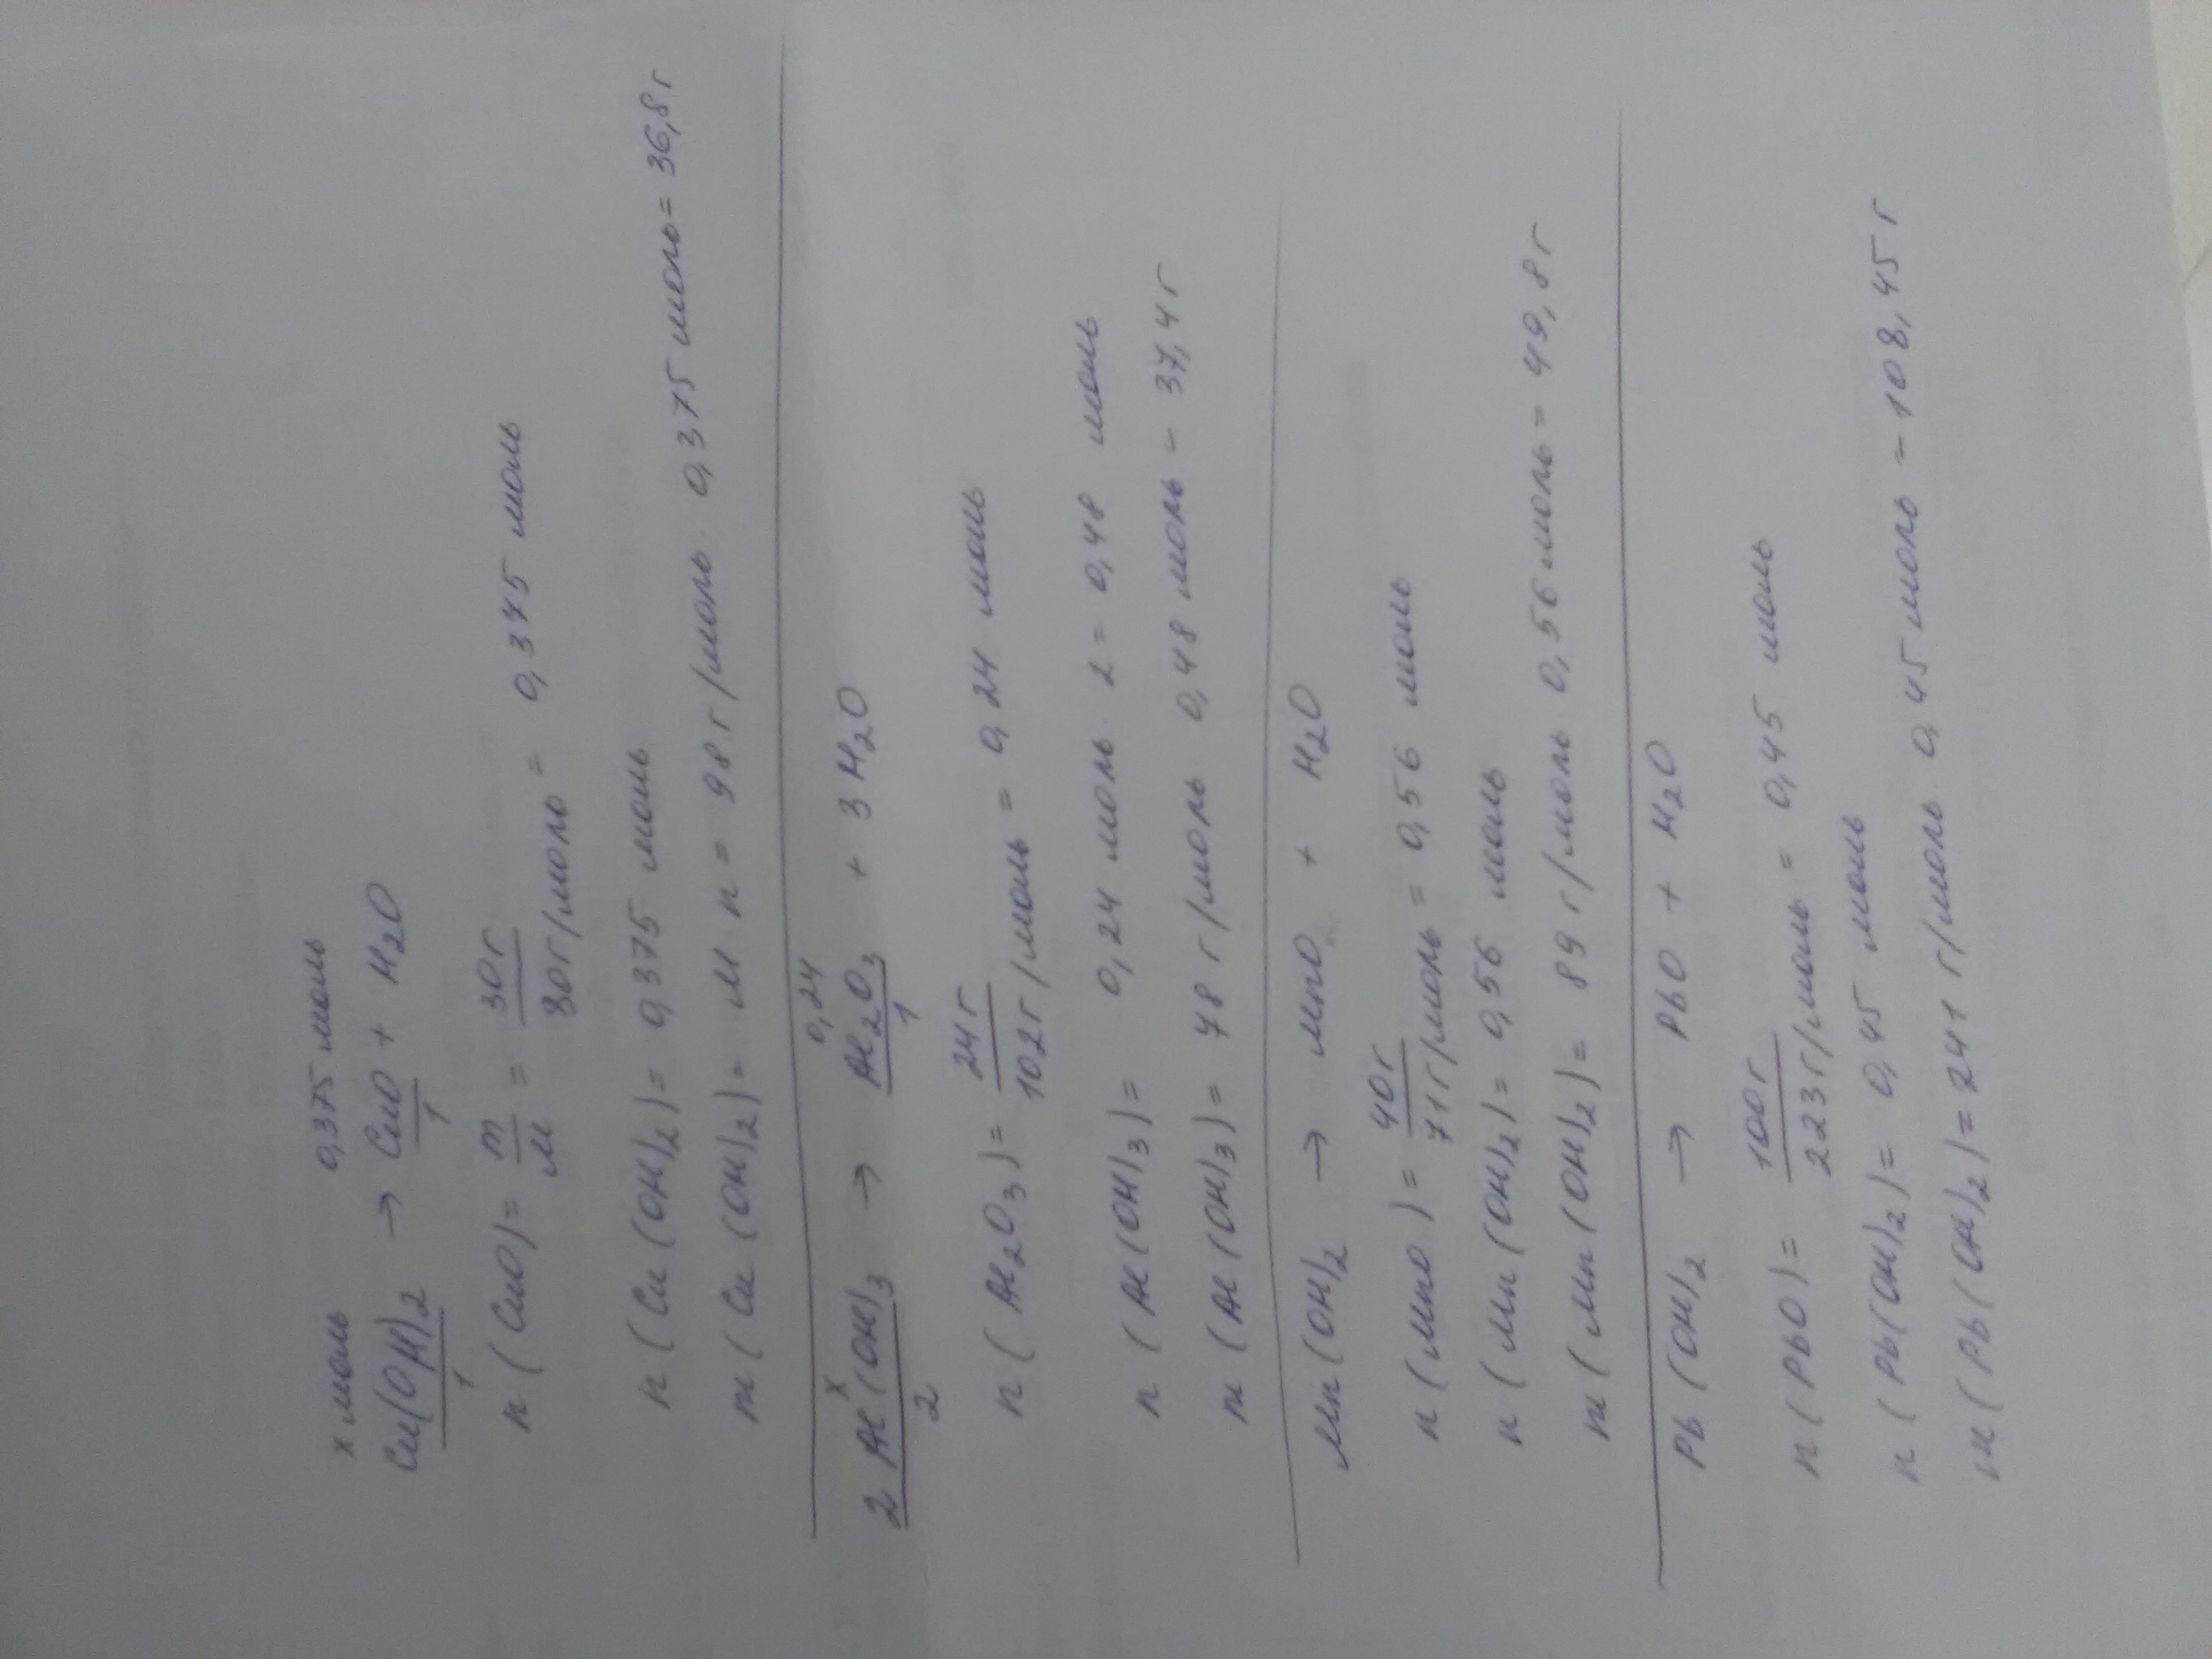 x моль 0,375 моль
Cu(OH)2 → CuO + H2O
1 1
n (CuO) = m/M = 30г/80г/моль = 0,375 моль
n (Cu(OH)2) = 0,375 моль
m (Cu(OH)2) = M n = 98 г/моль · 0,375 моль = 36,8 г
x 0,24
2 Al(OH)3 → Al2O3 + 3 H2O
2 1
n (Al2O3) = 24г/102г/моль = 0,24 моль
n (Al(OH)3) = 0,24 моль · 2 = 0,48 моль
m (Al(OH)3) = 78 г/моль · 0,48 моль = 37,4 г
Mn(OH)2 → MnO + H2O
n (MnO) = 40г/71г/моль = 0,56 моль
n (Mn(OH)2) = 0,56 моль
m (Mn(OH)2) = 89 г/моль · 0,56 моль = 49,8 г
Pb(OH)2 → PbO + H2O
n (PbO) = 100г/223г/моль = 0,45 моль
n (Pb(OH)2) = 0,45 моль
m (Pb(OH)2) = 241 г/моль · 0,45 моль = 108,45 г